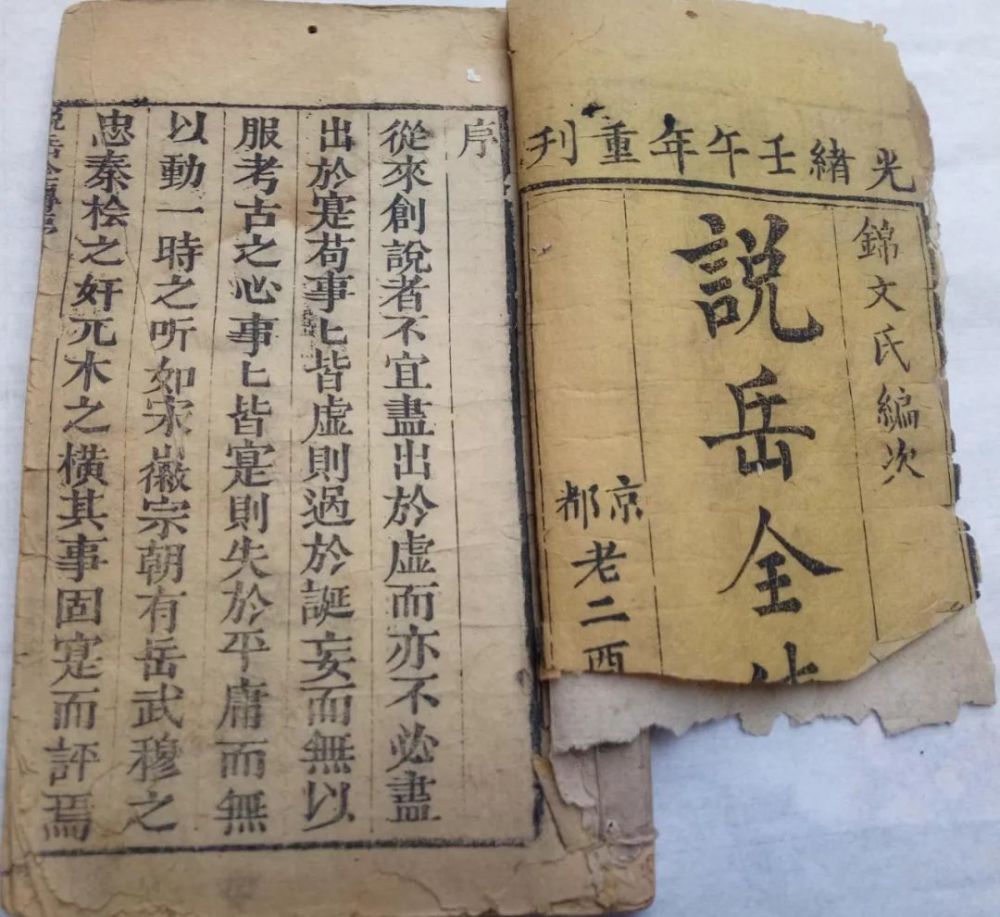 光緒壬午年重刊
錦文氏編次
説岳全
京都
老二酉
序
從來創說者不宜盡出於虛而亦不必盡
出於寔苟事匕皆虛則過於誕妄而無以
服考古之心事匕皆寔則失於平庸而無
以動一時之听如宋徽宗朝有岳武穆之
忠秦桧之奸兀木之橫其事固寔而評焉